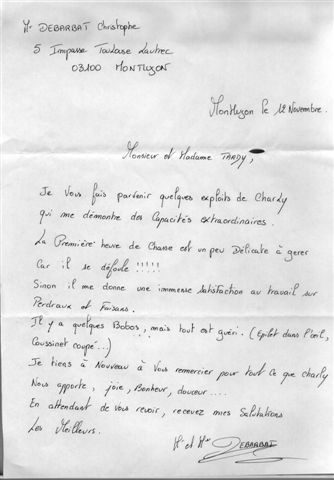 Mr DEBARBAT Christophe
5 Impasse Toulouse Lautrec
03100 MONTLUÇON
Montluçon le 12 Novembre.
Monsieur et Madame TARDY,
Je Vous fais parvenir quelques exploits de Charly
qui me démontre des Capacités extraordinaires.
La Première heure de Chasse est un peu Délicate à gerer
Car il se défoule !!!!!
Sinon il me donne une immense satisfaction au travail sur
Perdreaux et Faisans.
Il y a quelques Bobos, mais tout est guéri. (Epilet dans l'oeil,
Coussinet coupé...)
Je tiens à Nouveau à Vous remercier pour tout ce que charly
Nous apporte, joie, Bonheur, douceur....
En attendant de vous revoir, recevez mes Salutations
Les Meilleurs.
Mr et Mme DEBARBAT